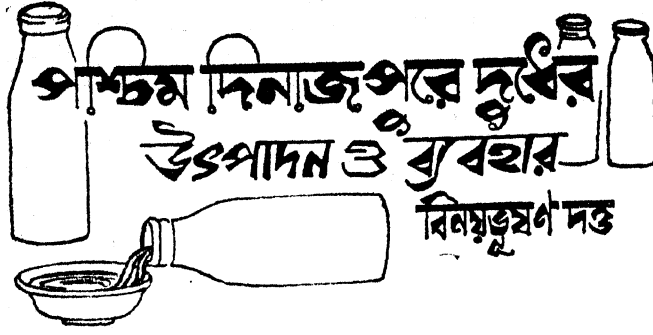 পশ্চিম দিনাজপুরে দুধের
উৎপাদন ও ব্যবহার
বিনয়ভূষণ দত্ত